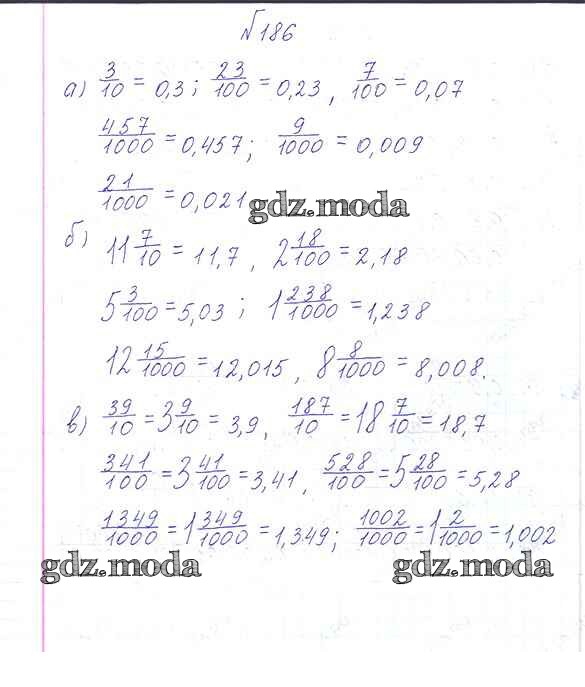 №186
а) 3/10 = 0,3; 23/100 = 0,23, 7/100 = 0,07
457/1000 = 0,457; 9/1000 = 0,009
21/1000 = 0,021
gdz.moda
б) 11 7/10 = 11,7, 2 18/100 = 2,18
5 3/100 = 5,03; 1 238/1000 = 1,238
12 15/1000 = 12,015, 8 8/1000 = 8,008.
в) 39/10 = 3 9/10 = 3,9, 187/10 = 18 7/10 = 18,7
341/100 = 3 41/100 = 3,41, 528/100 = 5 28/100 = 5,28
1349/1000 = 1 349/1000 = 1,349; 1002/1000 = 1 2/1000 = 1,002
gdz.moda gdz.moda